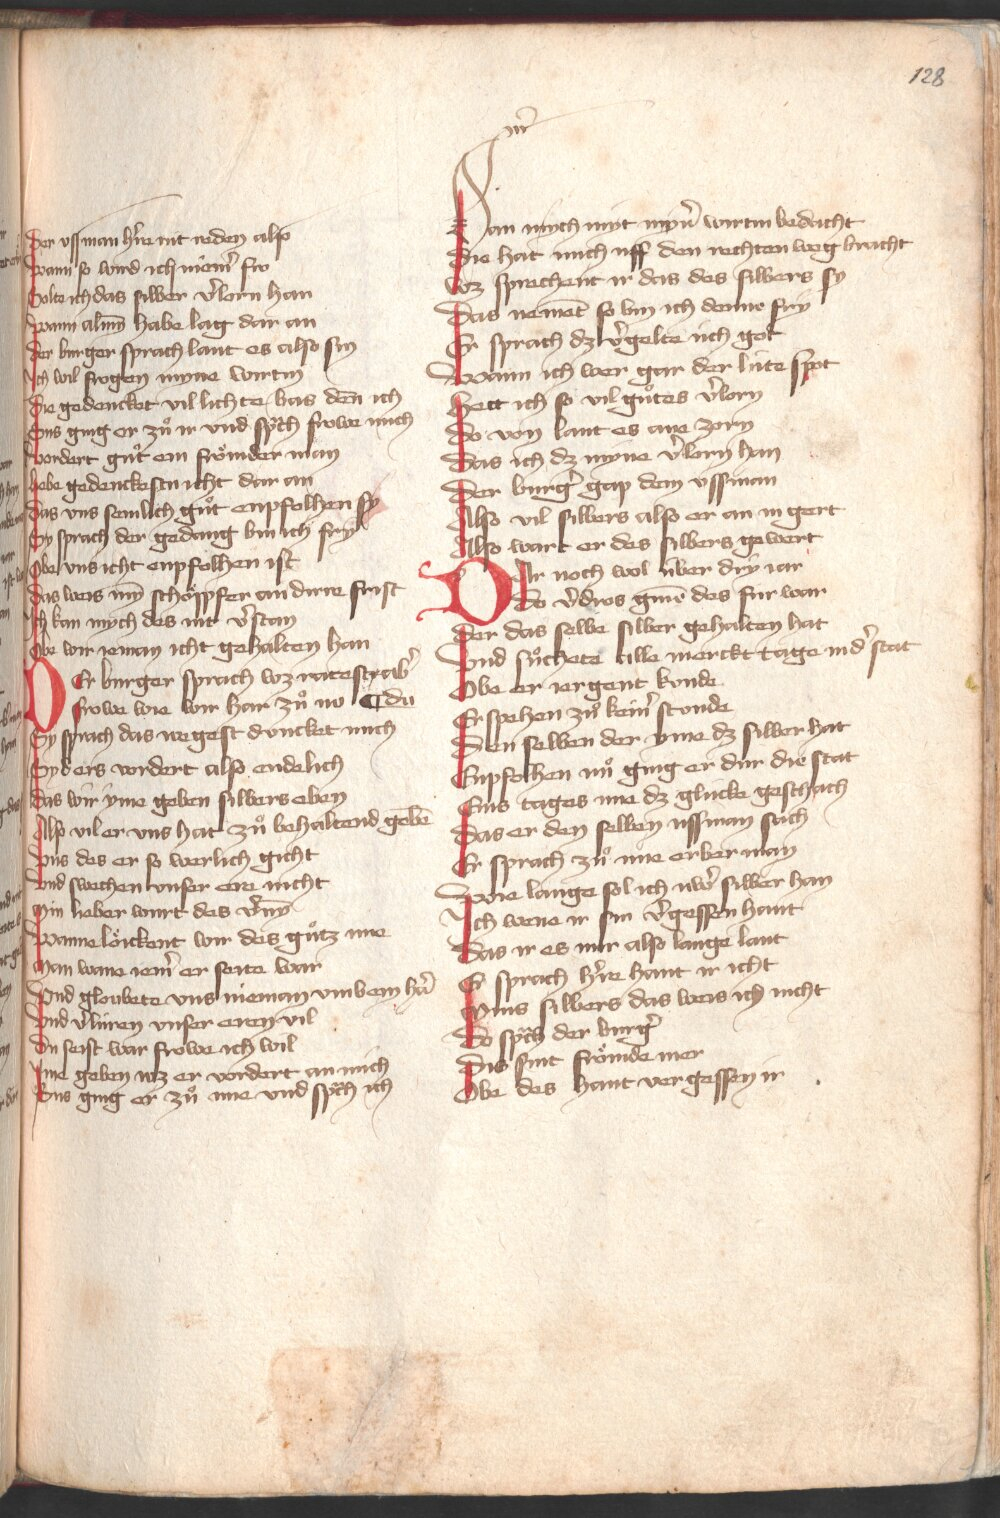 128
Der ussman h̾re nit reden also
Wann so wird ich niem̾ fro
Solte ich das silber v̾lorn han
Wann alm̄ habe lag dar an
Der burger sprach lant es also sin
Ich wil frogen myne wirtin
Die gedencket vil lichte bas den̄ ich
Sus ging er zuͦ ir vnd sp̾ch frowe mich
Vordert guͦt ein froͤmder man
Hebe gedenckestu icht dar an
Das vns semlich guͦt enpfolhen sy
Sy sprach der gedang bin ich fry
Obe vns icht enpfolhen ist
Das weis mȳ schoͤppfer an dirre frist
Ich kan mych des nit v̾stan
Obe wir ieman icht gehalten han
DEr burger sprach wz ratestu ab̾
frowe wie wir har zuͦ no ¶ du
Sy sprach das wegest duncket mich
Syd ers vordert also endelich
Das wir yme geben silbers eben
Also vil er vns hat zuͦ behaltend gebē
Vns des er so werlich gicht
Vnd swechen vnser ere nicht
Min lieber wurt des v̾nȳ
Wanne loͤickent wir des guͦtz ime
Man wane iem̾ er seite war
Vnd gloubete vns nieman vmb ein h̾a
Vnd v̾lüren vnser eren vil
Du seist war frowe ich wil
Ime geben wz er vordert an mich
Sus ging er zuͦ ime vnd sp̾ch ich
Han mych myt myn̾ wirtin bedacht
Die hat mich uff den rechten weg bracht
Wz sprechent ir das des silbers sy
Das nemēt so bin ich denne fry
Er sprach dz v̾gelte üch got
Wann ich wer gar der lüte spot
Hett ich so vil guͦtes v̾lorn
Do von lant es ane zorn
Das ich dz myne v̾lorn han
Der burg̾ gap dem ussman
Also vil silbers also er an in gert
Also wart er des silbers gewert
DAr noch wol über dry iar
Do v̾dros gniē des für war
Der das selbe silber gehalten hat
Vnd suͦchete alle merckt tage in d̾ stat
Obe er iergent konde
Erspehen zuͦ kein̾ stonde
Den selben der yme dz silber hat
Enpfolhen nuͦ ging er dur die stat
Eins tages ime dz glücke geschach
Das er den selben ussman sach
Er sprach zuͦ ime erber man
Wie lange sol ich üw̾ silber han
Ich wene ir sin v̾gessen hant
Das ir es mir also lange lant
Er sprach h̾re hant ir icht
Mins silbers das weis ich nicht
Do sp̾ch der burg̾
Dis sint froͤmde mer
Obe des hant vergessen ir